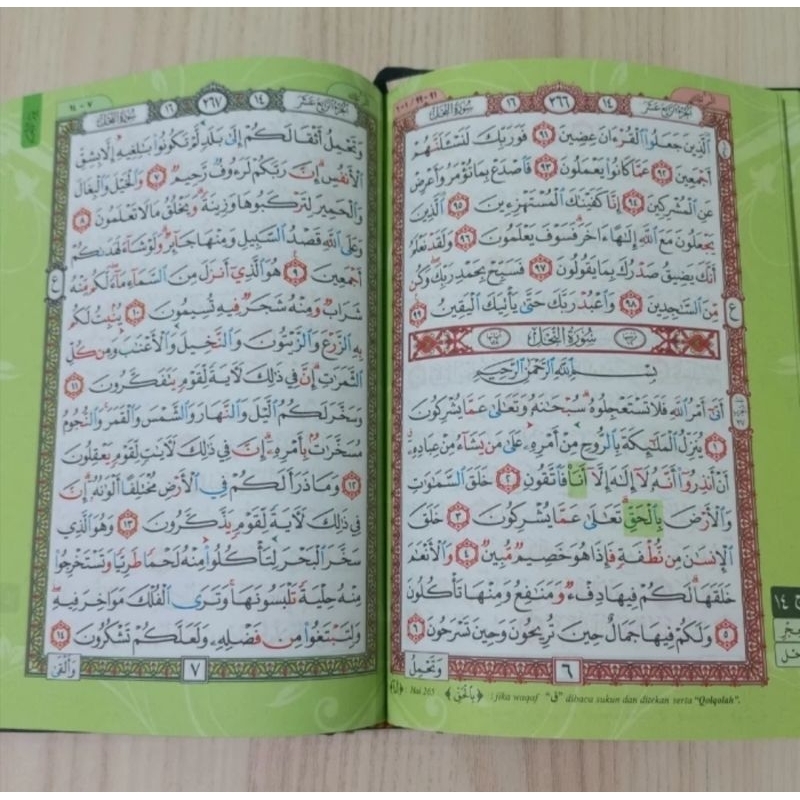 الجزء الرابع عشر ١٤ ٢٦٦ ١٦ سورة النحل
ٱلَّذِينَ جَعَلُوا۟ ٱلْقُرْءَانَ عِضِينَ ٩١ فَوَرَبِّكَ لَنَسْـَٔلَنَّهُمْ
أَجْمَعِينَ ٩٢ عَمَّا كَانُوا۟ يَعْمَلُونَ ٩٣ فَٱصْدَعْ بِمَا تُؤْمَرُ وَأَعْرِضْ
عَنِ ٱلْمُشْرِكِينَ ٩٤ إِنَّا كَفَيْنَـٰكَ ٱلْمُسْتَهْزِءِينَ ٩٥ ٱلَّذِينَ
يَجْعَلُونَ مَعَ ٱللَّهِ إِلَـٰهًا ءَاخَرَ فَسَوْفَ يَعْلَمُونَ ٩٦ وَلَقَدْ نَعْلَمُ
أَنَّكَ يَضِيقُ صَدْرُكَ بِمَا يَقُولُونَ ٩٧ فَسَبِّحْ بِحَمْدِ رَبِّكَ وَكُن
مِّنَ ٱلسَّـٰجِدِينَ ٩٨ وَٱعْبُدْ رَبَّكَ حَتَّىٰ يَأْتِيَكَ ٱلْيَقِينُ ٩٩
سُورَةُ النَّحْلِ
بِسْمِ ٱللَّهِ ٱلرَّحْمَـٰنِ ٱلرَّحِيمِ
أَتَىٰٓ أَمْرُ ٱللَّهِ فَلَا تَسْتَعْجِلُوهُ سُبْحَـٰنَهُۥ وَتَعَـٰلَىٰ عَمَّا يُشْرِكُونَ
١ يُنَزِّلُ ٱلْمَلَـٰٓئِكَةَ بِٱلرُّوحِ مِنْ أَمْرِهِۦ عَلَىٰ مَن يَشَآءُ مِنْ عِبَادِهِۦٓ
أَنْ أَنذِرُوٓا۟ أَنَّهُۥ لَآ إِلَـٰهَ إِلَّآ أَنَا۠ فَٱتَّقُونِ ٢ خَلَقَ ٱلسَّمَـٰوَٰتِ
وَٱلْأَرْضَ بِٱلْحَقِّ تَعَـٰلَىٰ عَمَّا يُشْرِكُونَ ٣ خَلَقَ
ٱلْإِنسَـٰنَ مِن نُّطْفَةٍ فَإِذَا هُوَ خَصِيمٌ مُّبِينٌ ٤ وَٱلْأَنْعَـٰمَ
خَلَقَهَا لَكُمْ فِيهَا دِفْءٌ وَمَنَـٰفِعُ وَمِنْهَا تَأْكُلُونَ
٥ وَلَكُمْ فِيهَا جَمَالٌ حِينَ تُرِيحُونَ وَحِينَ تَسْرَحُونَ ٦
٦ وَتَحْمِلُ
: Hal 265 ﴿بِالْحَقِّ﴾ : jika waqaf "ق" dibaca sukun dan ditekan serta "Qolqolah".
الجزء الرابع عشر ١٤ ٢٦٧ ١٦ سورة النحل
وَتَحْمِلُ أَثْقَالَكُمْ إِلَىٰ بَلَدٍ لَّمْ تَكُونُوا۟ بَـٰلِغِيهِ إِلَّا بِشِقِّ
ٱلْأَنفُسِ إِنَّ رَبَّكُمْ لَرَءُوفٌ رَّحِيمٌ ٧ وَٱلْخَيْلَ وَٱلْبِغَالَ
وَٱلْحَمِيرَ لِتَرْكَبُوهَا وَزِينَةً وَيَخْلُقُ مَا لَا تَعْلَمُونَ ٨
وَعَلَى ٱللَّهِ قَصْدُ ٱلسَّبِيلِ وَمِنْهَا جَآئِرٌ وَلَوْ شَآءَ لَهَدَىٰكُمْ
أَجْمَعِينَ ٩ هُوَ ٱلَّذِىٓ أَنزَلَ مِنَ ٱلسَّمَآءِ مَآءً لَّكُم مِّنْهُ
شَرَابٌ وَمِنْهُ شَجَرٌ فِيهِ تُسِيمُونَ ١٠ يُنۢبِتُ لَكُم
بِهِ ٱلزَّرْعَ وَٱلزَّيْتُونَ وَٱلنَّخِيلَ وَٱلْأَعْنَـٰبَ وَمِن كُلِّ
ٱلثَّمَرَٰتِ إِنَّ فِى ذَٰلِكَ لَـَٔايَةً لِّقَوْمٍ يَتَفَكَّرُونَ ١١
وَسَخَّرَ لَكُمُ ٱلَّيْلَ وَٱلنَّهَارَ وَٱلشَّمْسَ وَٱلْقَمَرَ وَٱلنُّجُومُ
مُسَخَّرَٰتٌۢ بِأَمْرِهِۦٓ إِنَّ فِى ذَٰلِكَ لَـَٔايَـٰتٍ لِّقَوْمٍ يَعْقِلُونَ
١٢ وَمَا ذَرَأَ لَكُمْ فِى ٱلْأَرْضِ مُخْتَلِفًا أَلْوَٰنُهُۥٓ إِنَّ
فِى ذَٰلِكَ لَـَٔايَةً لِّقَوْمٍ يَذَّكَّرُونَ ١٣ وَهُوَ ٱلَّذِى
سَخَّرَ ٱلْبَحْرَ لِتَأْكُلُوا۟ مِنْهُ لَحْمًا طَرِيًّا وَتَسْتَخْرِجُوا۟
مِنْهُ حِلْيَةً تَلْبَسُونَهَا وَتَرَى ٱلْفُلْكَ مَوَاخِرَ فِيهِ
وَلِتَبْتَغُوا۟ مِن فَضْلِهِۦ وَلَعَلَّكُمْ تَشْكُرُونَ ١٤
٧ وَأَلْقَىٰ